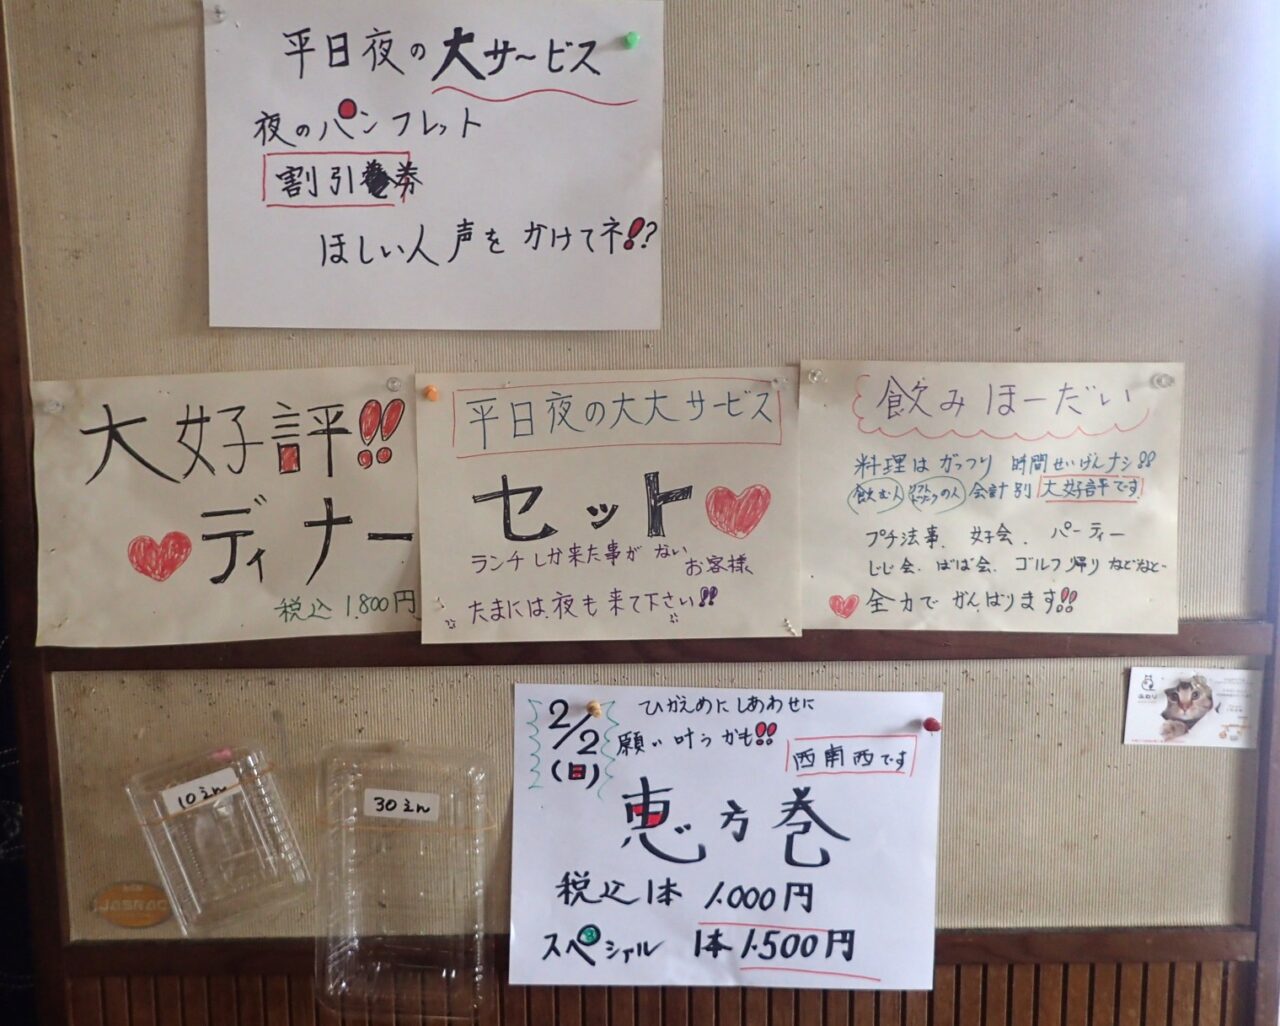 平日夜の大サービス
夜のパンフレット
割引券
ほしい人声をかけてネ!!?
大好評!!
ディナー
税込1.800円
平日夜の大大サービス
セット
ランチしか来た事がない
お客様
たまには夜も来て下さい!!
飲みほーだい
料理はがっつり 時間せいげんナシ!!
飲む人 ソフトドリンクの人 会計別 大好評です
プチ法事、女子会、パーティー
じじ会、ばば会、ゴルフ帰りなどなど
全力でがんばります!!
2/2
(日)
ひかえめにしあわせに
願い叶うかも!!
西南西です
恵方巻
税込1本 1.000円
スペシャル 1本 1.500円
10えん
30えん
JASRAC
ふわり